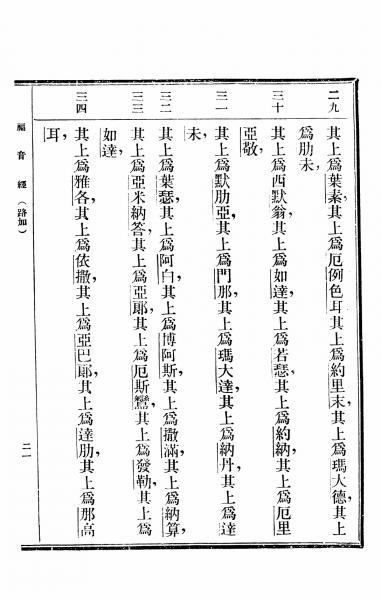 二九 其上爲葉素，其上爲厄例色耳，其上爲約里末，其上爲瑪大德，其上
爲肋未，
三十 其上爲西默翁，其上爲如達，其上爲若瑟，其上爲約納，其上爲厄里
亞敬，
三一 其上爲默肋亞，其上爲門那，其上爲瑪大達，其上爲納丹，其上爲達
未，
三二 其上爲葉瑟，其上爲阿白，其上爲博阿斯，其上爲撒滿，其上爲納算，
三三 其上爲亞米納答，其上爲亞郞，其上爲厄斯鸞，其上爲發勒，其上爲
如達，
三四 其上爲雅各，其上爲依撒，其上爲亞巴郞，其上爲達肋，其上爲那高
耳，
福音經（路加）
二一